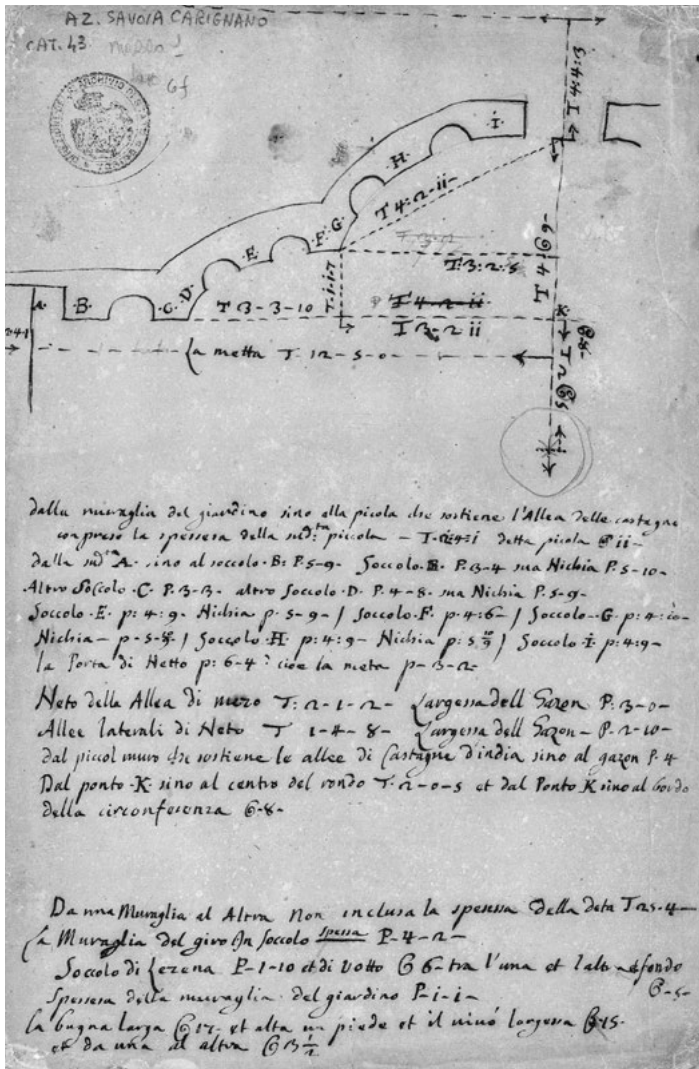 AZ. SAVOIA CARIGNANO
CAT. 43
6f
T 4:4:3
·I·
·H·
T 4:2-ii-
·G·
·F·
·E·
·D·
·C·
·B·
A·
T 3-3-10
T·i·i·7
T:3:2·5
T 4-2-ii
T 3-2 ii
K
La metta T-12-5-0-
dalla muraglia del giardino sino alla picola che sostiene l'Allea delle castagne
compreso la spessesa della sud:ta piccola - detta picola ii-
dalla sud:ta A· sino al soccolo·B· P.5-9- Soccolo·B· P.3-4 sua Nichia P.5-10-
Altro Soccolo·C· P.3-3- altro Soccolo·D· P.4-8- sua Nichia P.5-9-
Soccolo·E· p:4:9- Nichia p·5-9-/ Soccolo·F· p·4:6-/ Soccolo-·G· p:4:10-
Nichia- / Soccolo·H· p:4:9- Nichia / Soccolo·I· p:4:9-
la Porta di Netto p:6-4: cioe la meta p-3-2-
Neto della Allea di mezo T:2-1-2- Largessa dell Gazon P:3-0-
Allee laterali di Neto T 1-4-8- Largessa dell Gazon- P-2-10-
dal piccol muro che sostiene le allee di Castagne d'india sino al gazon P-4
Dal ponto·K· sino al centro del rondo T-2-0-5 et dal Ponto K sino al bordo
della circonferenza 8-
Da una Muraglia al Altra Non inclusa la spessa della deta T25-4-
La Muraglia del giro in soccolo spessa P-4-2-
Soccolo di Lezena P-1-10 et di Votto 6-tra l'una et laltra fondo
5-
Spessesa della muraglia del giardino P-i-i-
la bugna larga 17- et alta un piede et il vivo largessa 15-
et da una al altra 3 1/2